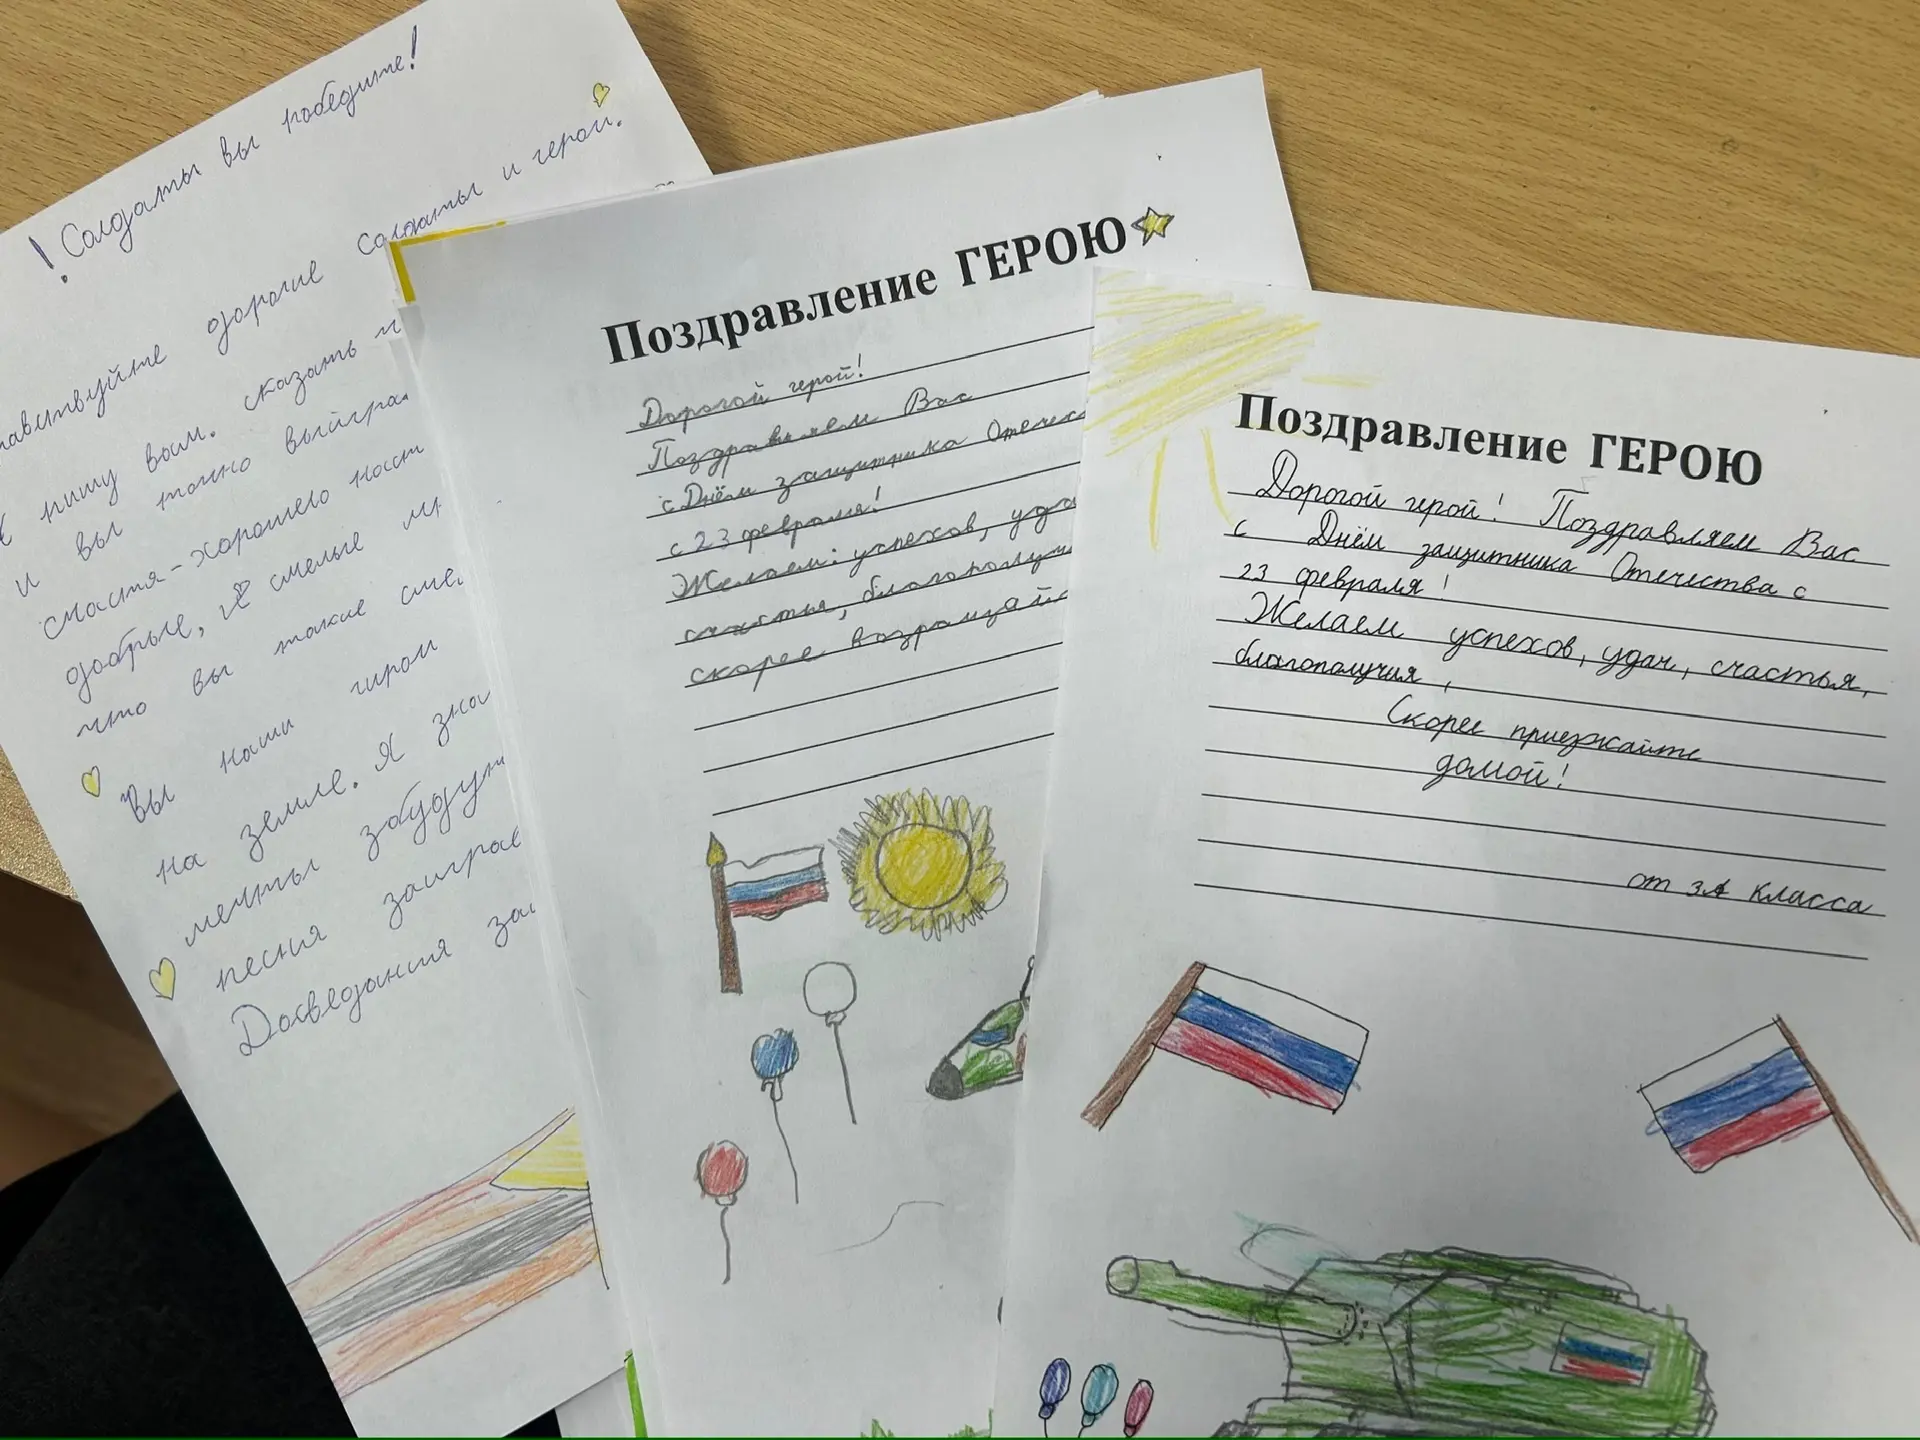 ! Солдаты вы победите!
дорогие солдаты и герои.
пишу вым. сказать
и вы точно выигра
счастя-хорошего наст
добрые, смелые
что вы такие сме
Вы наши гирои
на земле. Я зна
мечты забудут
песня заиграе
Досведания за
Поздравление ГЕРОЮ
Дорогой герой!
Поздравляем Вас
с Днём защитника Отечес
с 23 февраля!
Желаем: успехов, уда
счастья, благополучи
скорее возращай
Поздравление ГЕРОЮ
Дорогой герой! Поздравляем Вас
с Днём защитника Отечества с
23 февраля!
Желаем успехов, удач, счастья,
благополучия,
Скорее приезжайте
домой!
от 3А класса